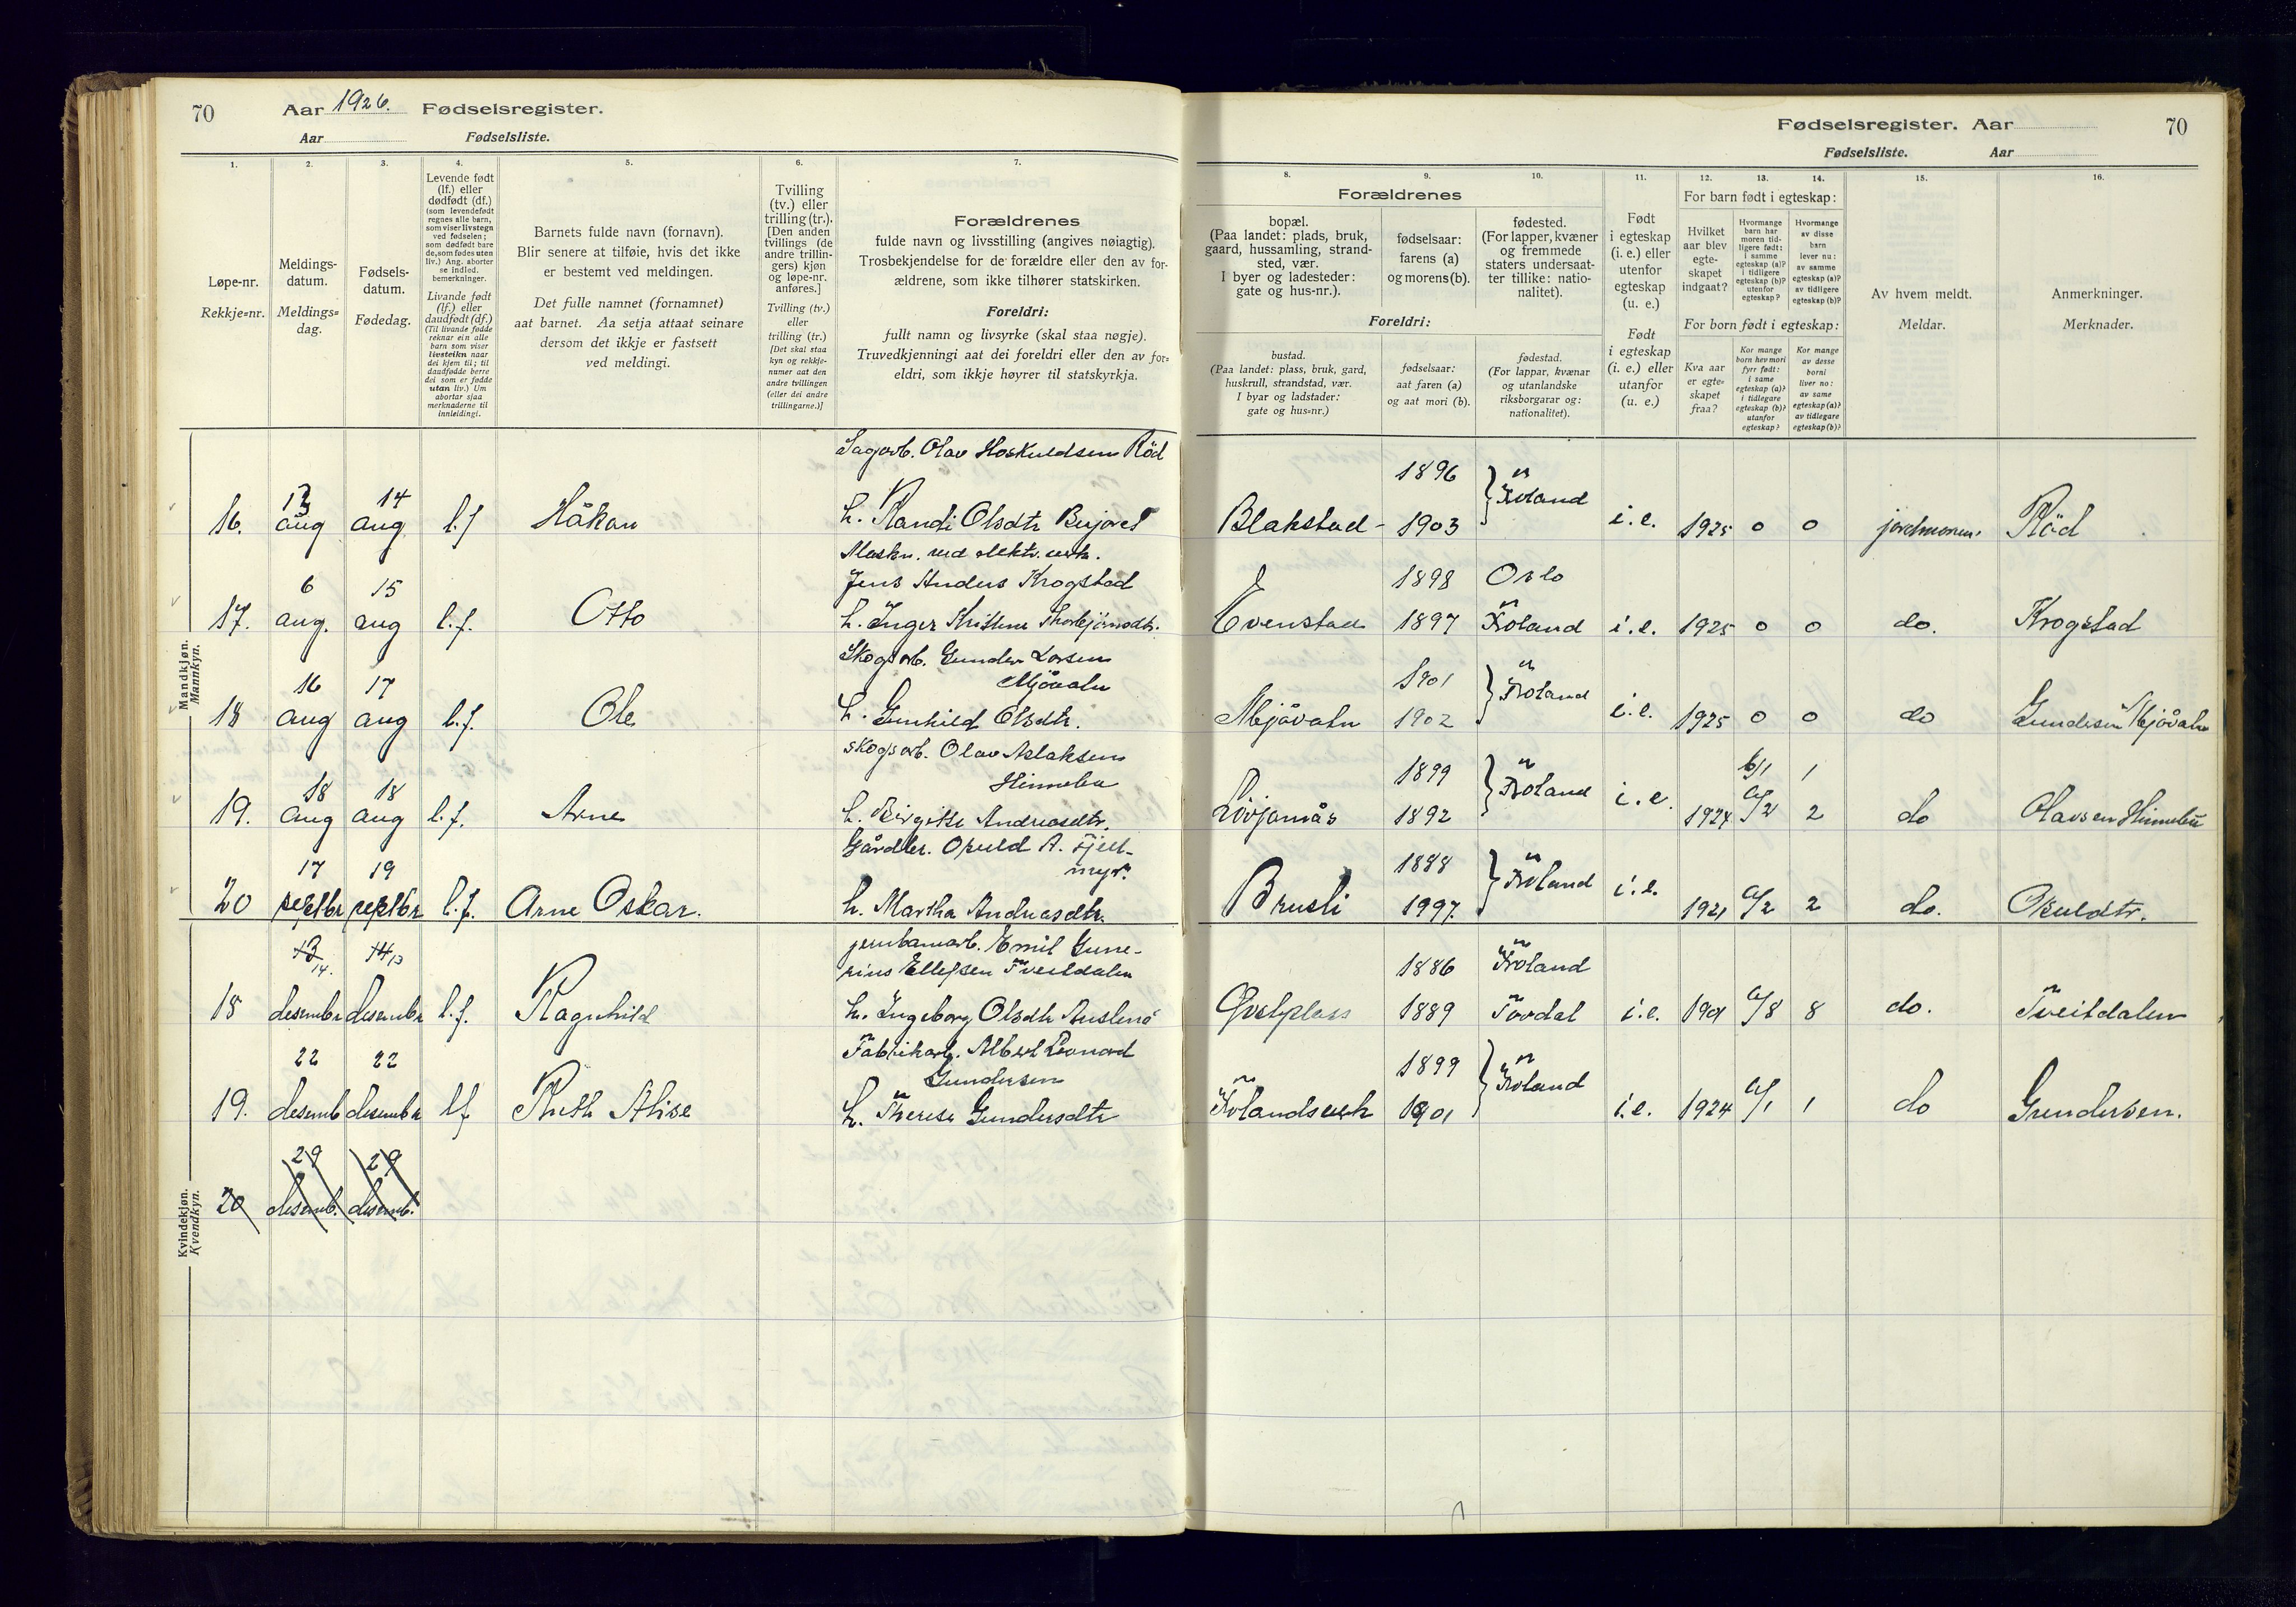 70
Aar 1926. Fødselsregister.
Aar Fødselsliste.
Fødselsregister. Aar
70
Fødselsliste. Aar
1. 2. 3. 4. 5. 6. 7. 8. 9. 10. 11. 12. 13. 14. 15. 16.
Løpe-nr.
Rekkje=nr.
Meldings-
datum.
Meldings=
dag.
Fødsels-
datum.
Fødedag.
Levende født
(lf.) eller
dødfødt (df.)
(som levendefødt
regnes alle barn,
som viser livstegn
ved fødselen;
som dødfødt bare
de, som fødes uten
liv.) Ang. aborter
se indled.
bemerkninger.
Livande født
(lf.) eller
daudfødt (df.)
(Til livande fødde
reknar ein alle
born som viser
livsteikn naar
dei kjem til; til
daudfødde berre
dei som er fødde
utan liv.) Um
abortar sjaa
merknaderne til
innleidingi.
Barnets fulde navn (fornavn).
Blir senere at tilføie, hvis det ikke
er bestemt ved meldingen.
Det fulle namnet (fornamnet)
aat barnet. Aa setja attaat seinare
dersom det ikkje er fastsett
ved meldingi.
Tvilling
(tv.) eller
trilling (tr.).
[Den anden
tvillings (de
andre trillin-
gers) kjøn
og løpe-nr.
anføres.]
Tvilling (tv.)
eller
trilling (tr.)
[Det skal staa
kyn og rekkje-
numer aat den
andre tvillingen
(eller dei andre
trillingarne.)]
Forældrenes
fulde navn og livsstilling (angives nøiagtig).
Trosbekjendelse for de forældre eller den av for-
ældrene, som ikke tilhører statskirken.
Foreldri:
fullt namn og livsyrke (skal staa nøgje).
Truvedkjenningi aat dei foreldri eller den av for=
eldri, som ikkje høyrer til statskyrkja.
Forældrenes
bopæl.
(Paa landet: plads, bruk,
gaard, hussamling, strand-
sted, vær.
I byer og ladesteder:
gate og hus-nr.).
fødselsaar:
farens (a)
og morens (b).
fødested.
(For lapper, kvæner
og fremmede
staters undersaat-
ter tillike: natio-
nalitet).
Foreldri:
bustad.
(Paa landet: plass, bruk, gard,
huskrull, strandstad, vær.
I byar og ladstader:
gate og hus-nr.)
fødselsaar:
aat faren (a)
og aat mori (b).
fødestad.
(For lappar, kvænar
og utanlandske
riksborgarar og:
nationalitet).
Født
i egteskap
(i. e.) eller
utenfor
egteskap
(u. e.)
Født
i egteskap
(i. e.) eller
utanfor
(u. e.)
For barn født i egteskap:
Hvilket
aar blev
egte-
skapet
indgaat?
Hvormange
barn har
moren tid-
ligere født:
i samme
egteskap (a)?
i tidligere
egteskap (b)?
utenfor
egteskap?
Hvormange
av disse
barn
lever nu:
av samme
egteskap (a)?
av tidligere
egteskap (b)?
For born født i egteskap:
Kva aar
er egte=
skapet
fraa?
Kor mange
born hev mori
fyrr født:
i same
egteskap (a)?
i tidlegare
egteskap (b)?
utanfor
egteskap?
Kor mange
av desse
borni
liver no:
av same
egteskap (a)?
av tidlegare
egteskap (b)?
Av hvem meldt.
Meldar.
Anmerkninger.
Merknader.
Mandkjøn.
Mannkyn.
Sagarb. Olav Hoskuldsen Röd
16. 13 aug 14 aug. l. f Håkon h. Randi Olsdtr Blakstad 1896 1903 Froland i. e. 1925 0 0 jordmoren. Röd
Maskn. ved elektr. verk.
Jens Anders Krogstad
17. 6 aug. 15 aug l. f. Otto h. Inger Kristine Thorbjörnsdtr. Evenstad 1898 1897 Oslo Froland i. e. 1925 0 0 do. Krogstad
Skogsarb. Gunder Larsen
Mjåvatn
18 16 aug 17 aug l. f. Ole h. Gunhild Olsdtr. Mjåvatn 1901 1902 Froland i. e. 1925 0 0 do Gundersen Mjåvatn
Skogsarb. Olav Aslaksen
Hinnebu
19. 18 aug 18 aug l. f. Arne h. Birgitte Andreasdtr. 1899 1892 Froland i. e. 1924 b/1 a/2 1 2 do Olavsen Hinnebu
Gårdbr. Osuld A. Fjell-
myr.
20 17 septbr 19 septbr l. f. Arne Oskar. h. Martha Andreasdtr. Brusli 1888 1997. Froland i. e. 1921 a/2 2 do. Osuldtr.
Kvindekjøn.
Kvendkyn.
jernbanearb. Emil Gune-
rius Ellefsen Tveitdalen
18 13 14. desembr 14 13 desembr l. f. Ragnhild h. Ingeborg Olsdtr 1886 1889 Froland Tovdal i. e. a/8 8 do. Tveitdalen
Fabrikarb. Albert Leonard
Gundersen
19. 22 desemb 22 desembr lf Ruth Alise h. Therese Gundersdtr Frolandsverk 1899 1901 Froland i. e. 1924 a/1 1 do Gundersen.
20 29 desemb. 29 desemb.